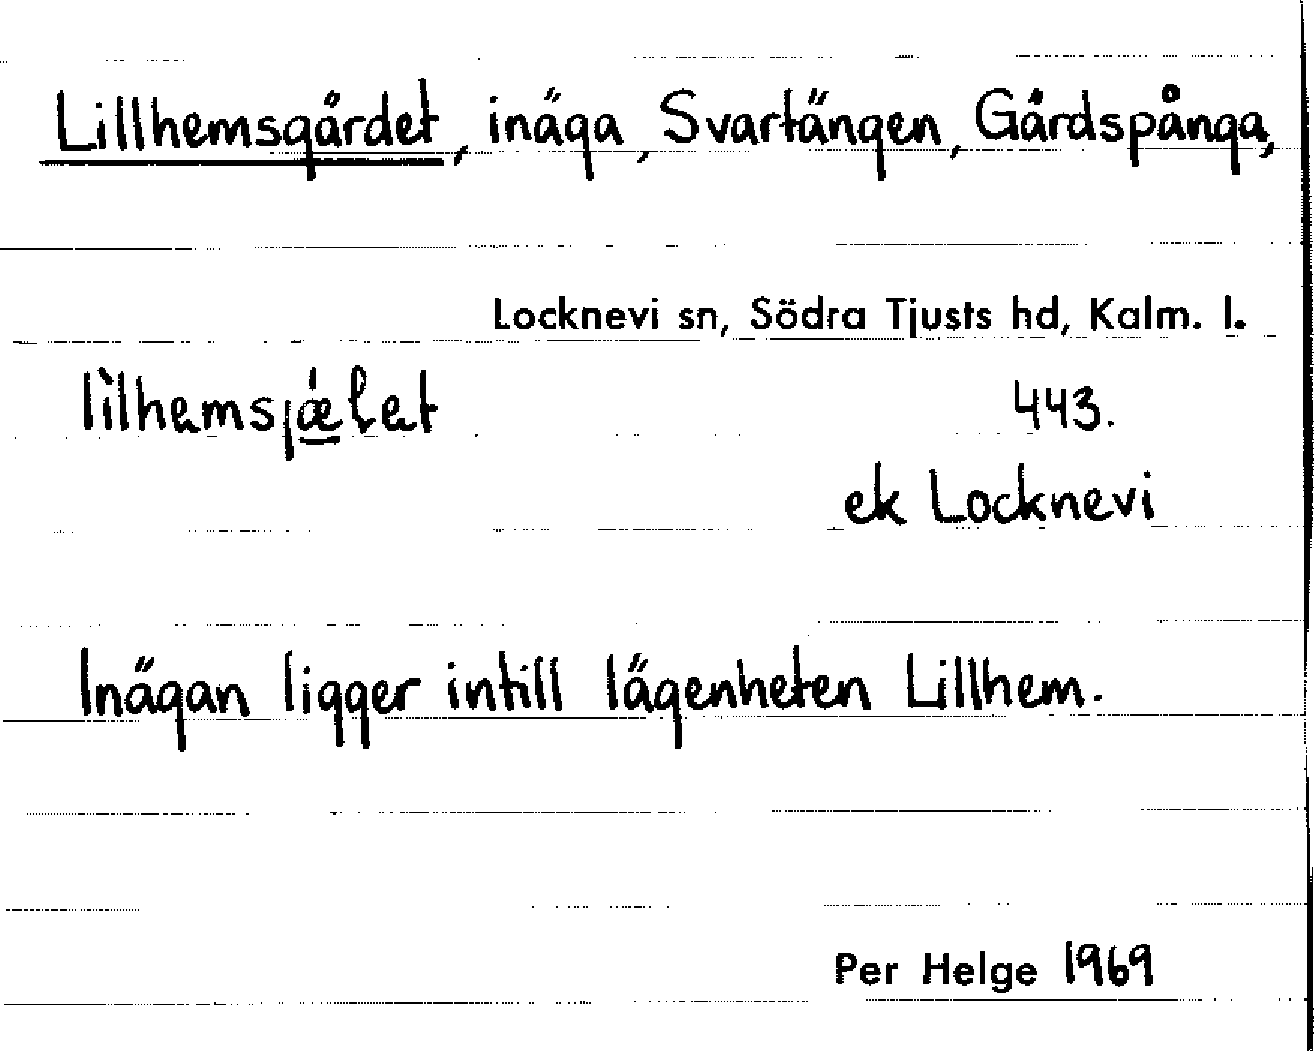 Lillhemsgärdet, inäga, Svartängen, Gårdspånga,
Locknevi sn, Södra Tjusts hd, Kalm. l.
443.
ek Locknevi
Inägan ligger intill lägenheten Lillhem.
Per Helge 1969